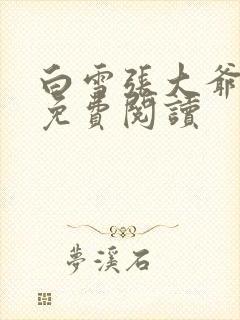 白雪張大爺
免費閱讀
夢溪石